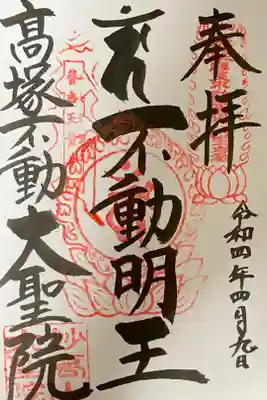 奉拝
令和四年四月九日
不動明王
高塚不動大聖院